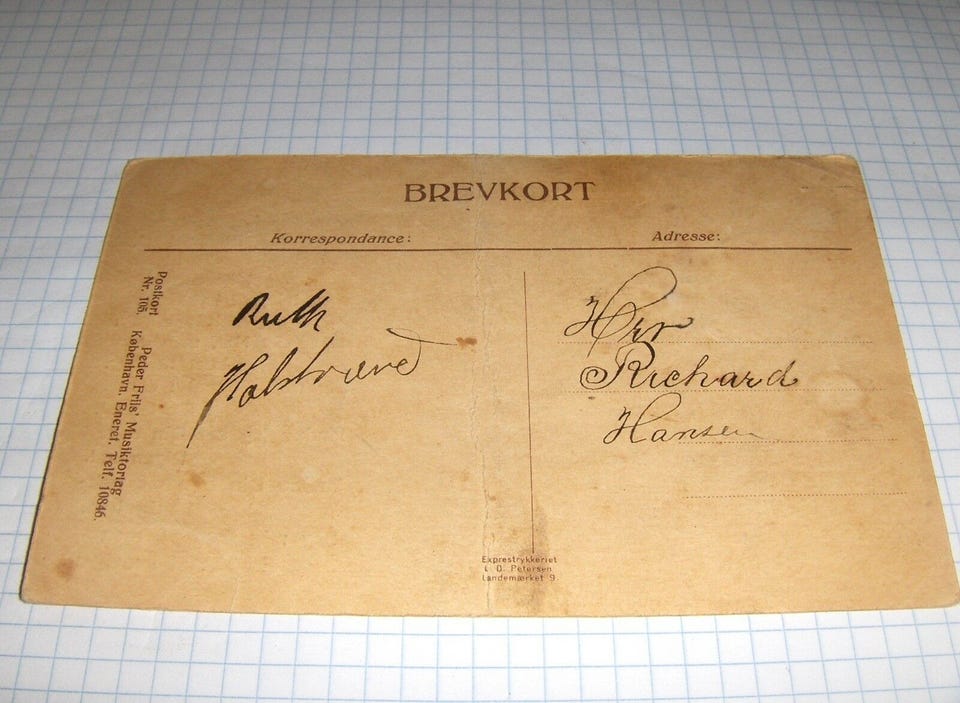 BREVKORT
Korrespondance:
Adresse:
Postkort
Nr. 105.
Peder Friis' Musikforlag
København. Eneret. Telf. 10846.
Ruth
Herr
Richard
Hansen
Exprestrykkeriet
L. O. Petersen
Landemærket 9.